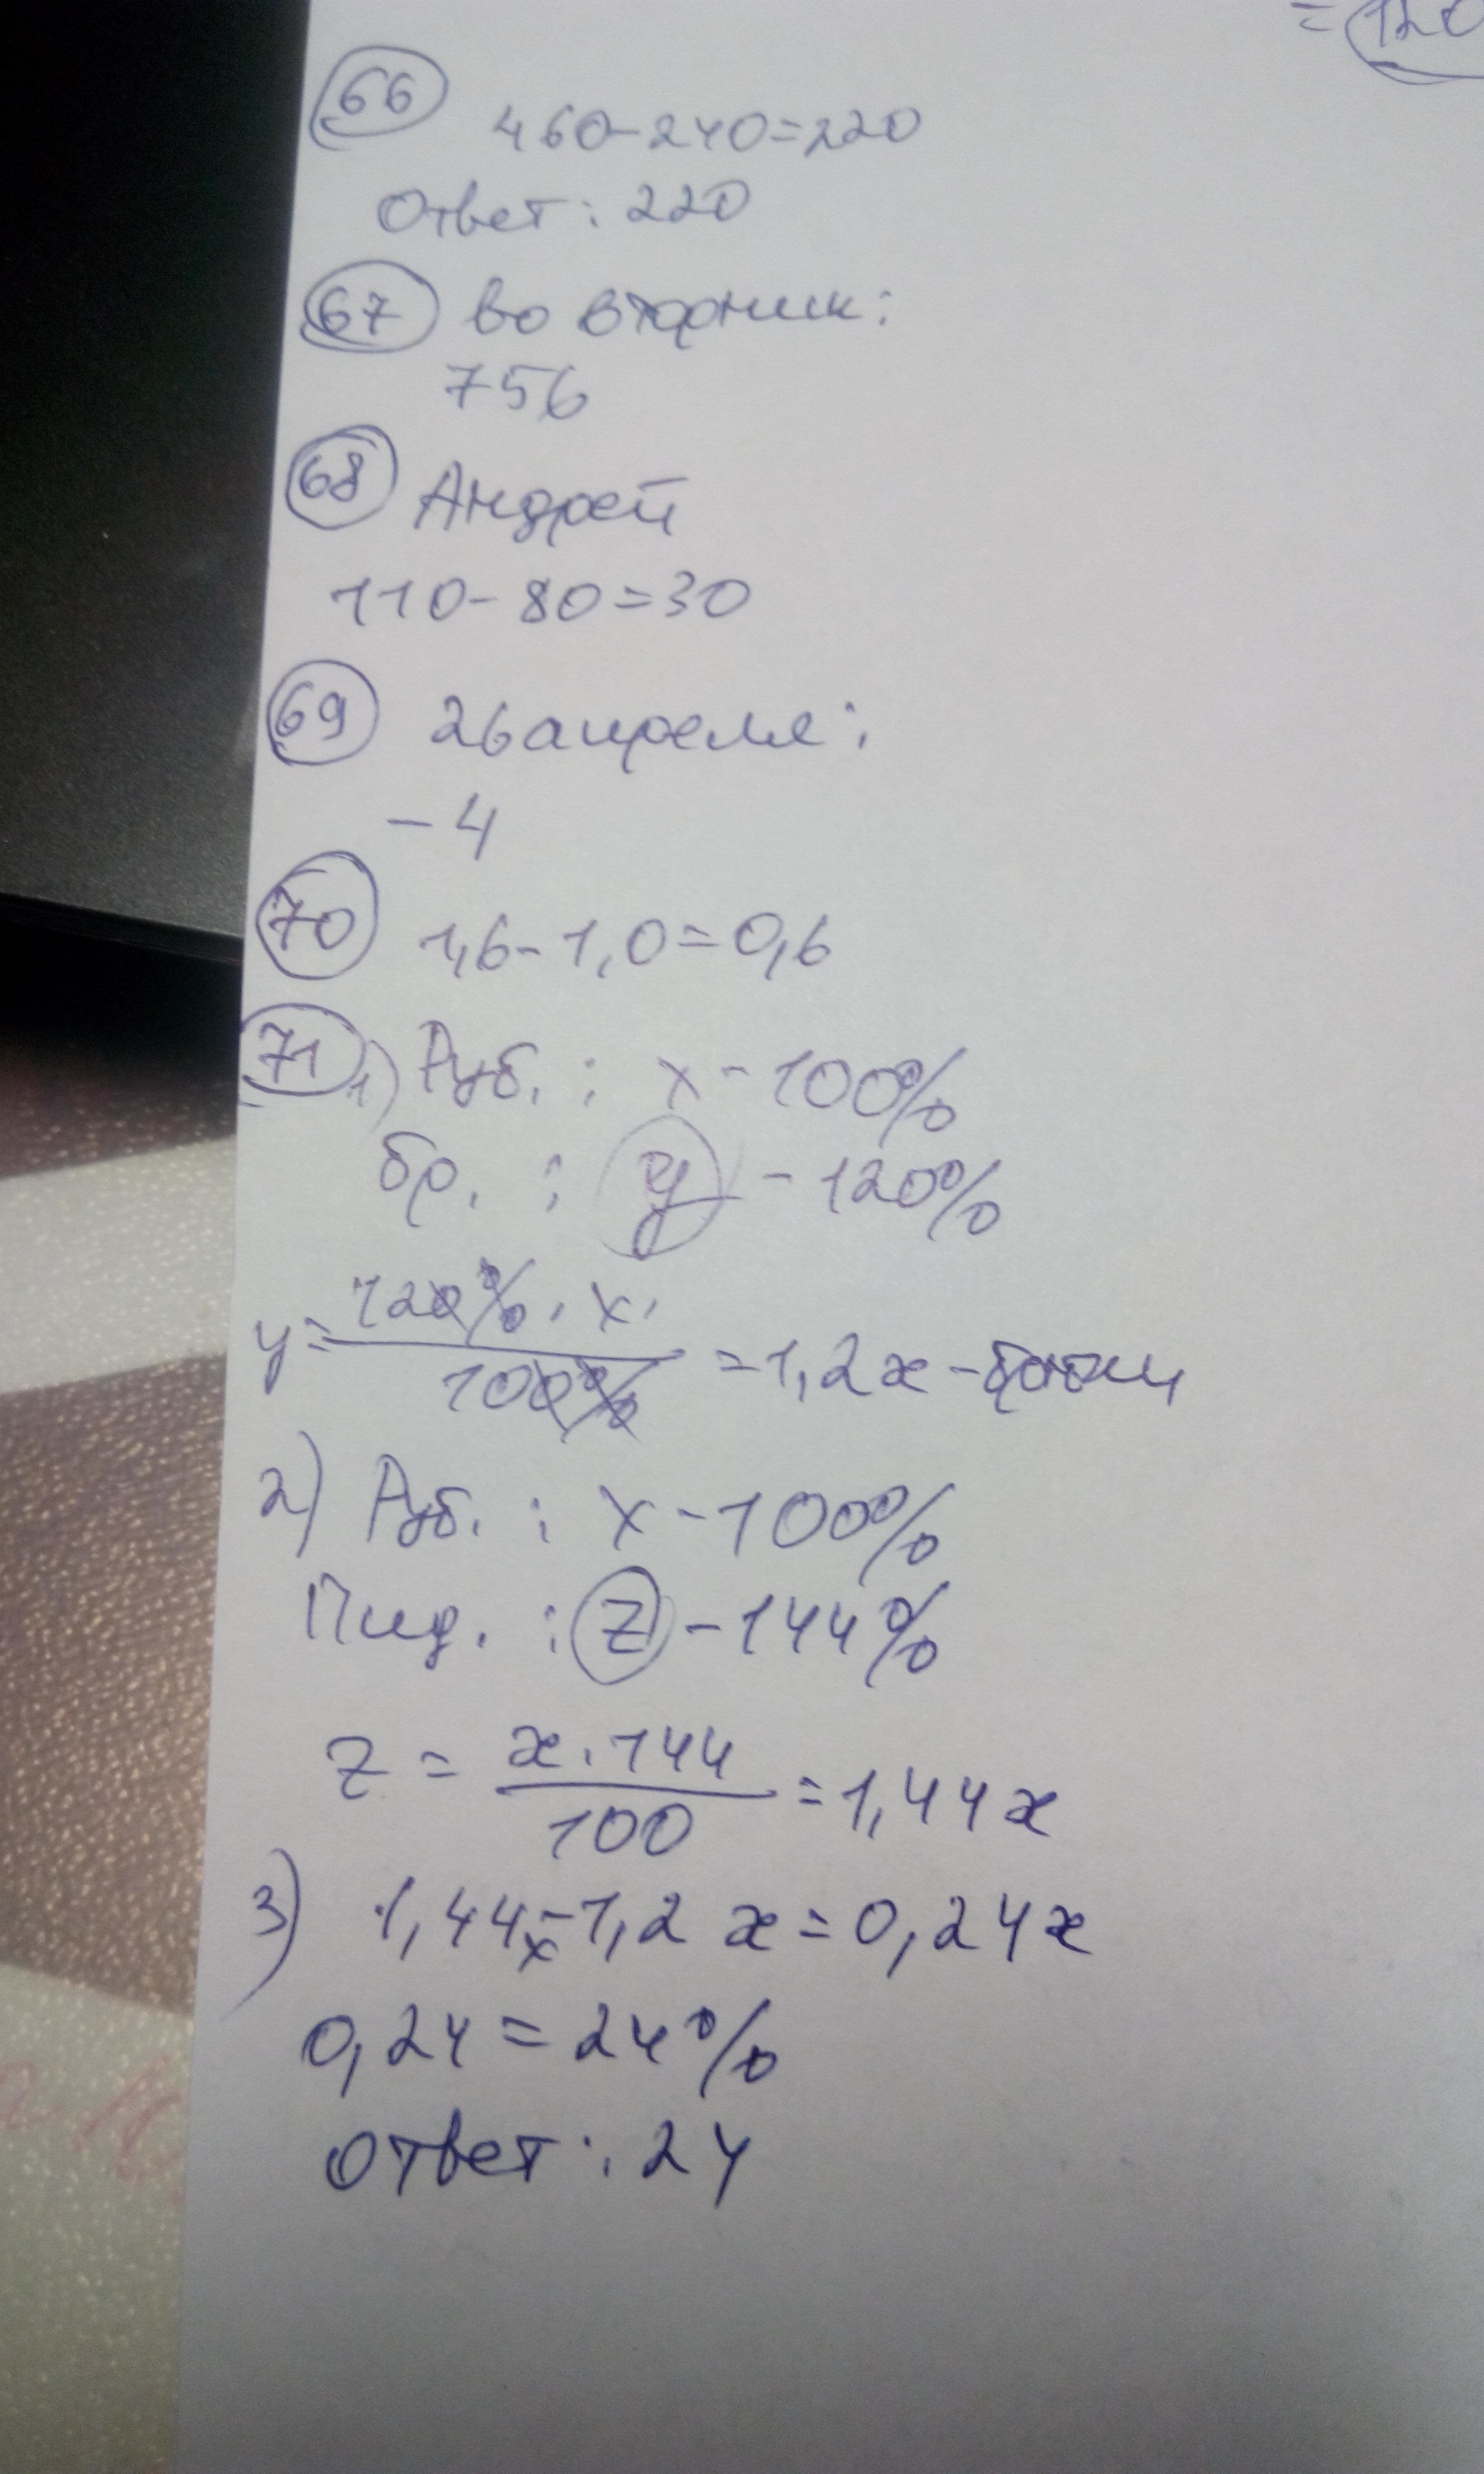 = 120
66 460-240=220
Ответ: 220
67 во вторник:
756
68 Андрей
110-80=30
69 26 апреля:
-4
70 1,6-1,0=0,6
71 1) Руб. : x - 100%
бр. : y - 120%
y = 120% · x · / 100% = 1,2x -
2) Руб. : x - 100%
Пид. : z - 144%
z = x · 144 / 100 = 1,44x
3) 1,44x - 1,2x = 0,24x
0,24 = 24%
Ответ: 24